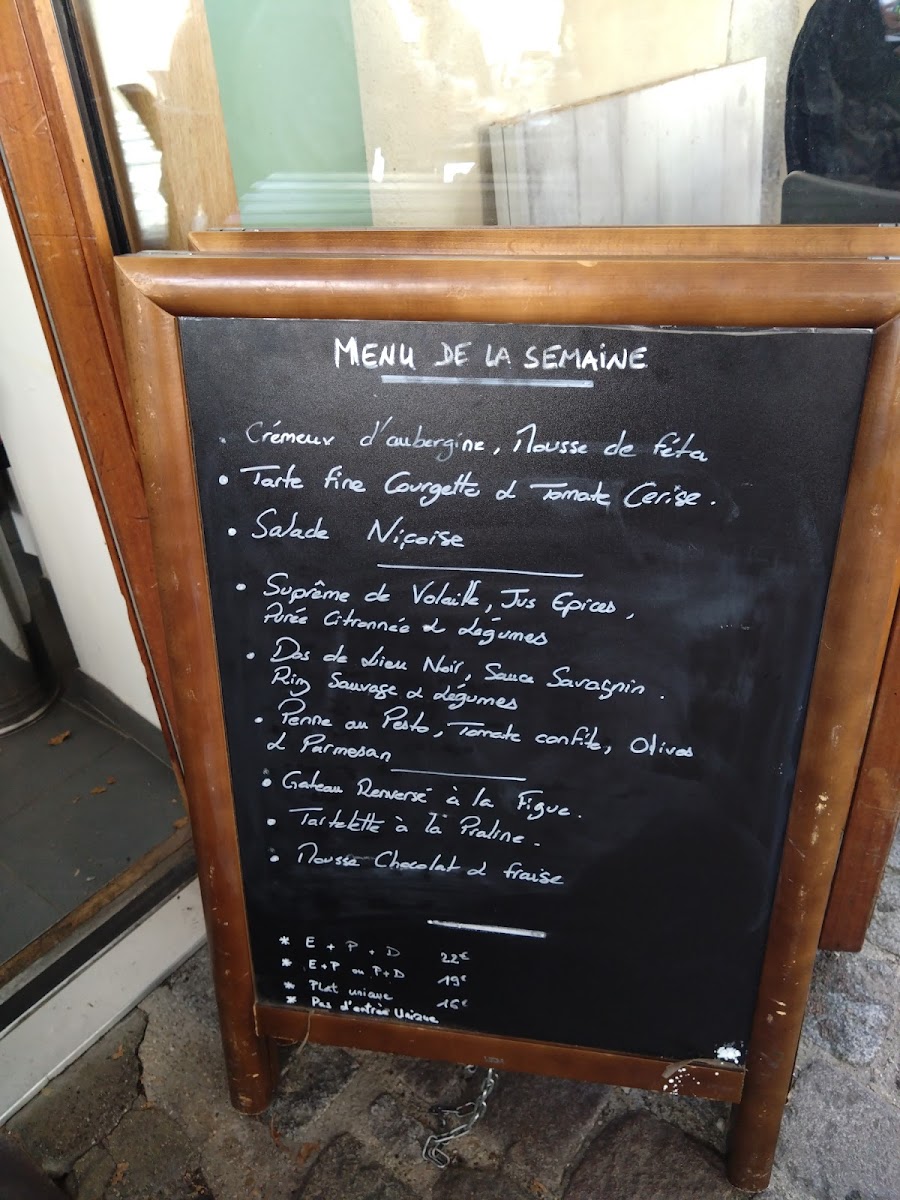 MENU DE LA SEMAINE
• Crémeux d'aubergine, Mousse de féta
• Tarte fine Courgette & Tomate Cerise.
• Salade Niçoise
• Suprême de Volaille, Jus Epices,
Purée Citronnée & Légumes
• Dos de Lieu Noir, Sauce Savagnin.
Riz Sauvage & Légumes
• Penne au Pesto, Tomate confite, Olives
& Parmesan
• Gateau Renversé à la Figue.
• Tartelette à la Praline.
• Mousse Chocolat & fraise
* E + P + D 22€
* E+P ou P+D 19€
* Plat unique 16€
* Pas d'entrée Unique